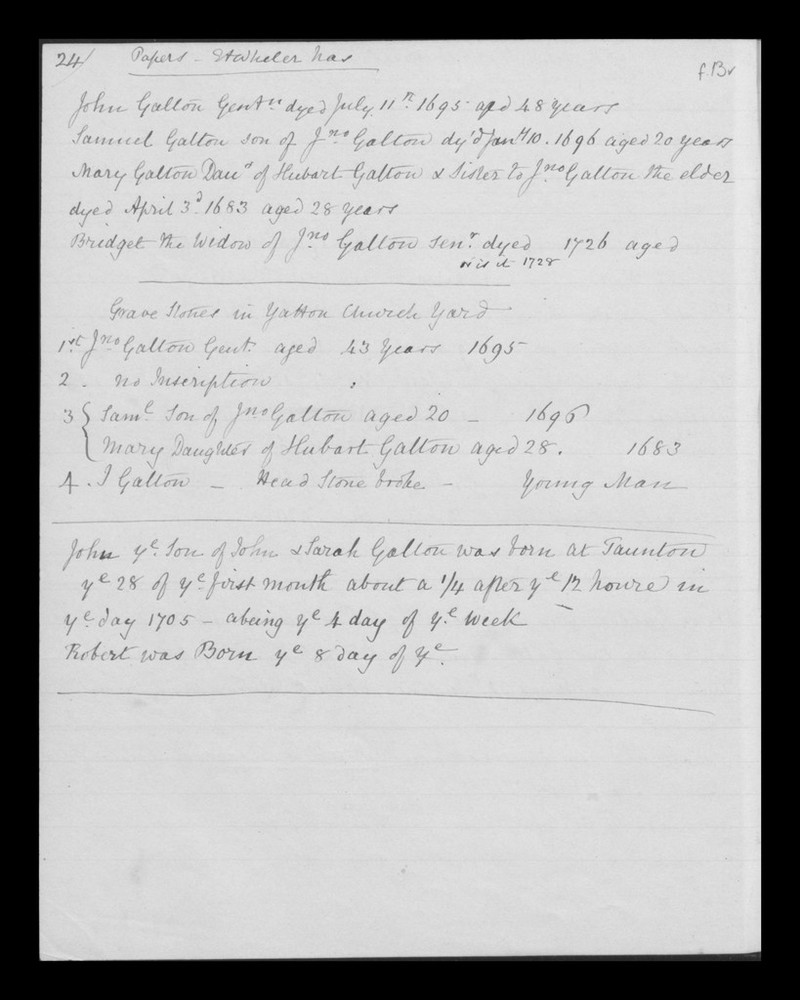 24/ Papers - EAWheler has
f.13v
John Galton Gentn dyed July 11th 1695 aged 48 years
Samuel Galton son of Jno Galton dy'd Jany 10. 1696 aged 20 years
Mary Galton Daur of Hubart Galton & Sister to Jno Galton the elder
dyed April 3d 1683 aged 28 years
Bridget the Widow of Jno Galton senr dyed 1726 aged
or is it 1728
Grave Stones in Yatton Church Yard
1st Jno Galton Gent. aged 43 Years 1695
2. no Inscription
3 { Saml Son of Jno Galton aged 20 - 1696
Mary Daughter of Hubart Galton aged 28. 1683
4. I Galton - Head Stone broke - Young Man
John ye Son of John & Sarah Galton was born at Taunton
ye 28 of ye first month about a 1/4 after ye 12 houre in
ye day 1705 - abeing ye 4 day of ye week
Robert was Born ye 8 day of ye